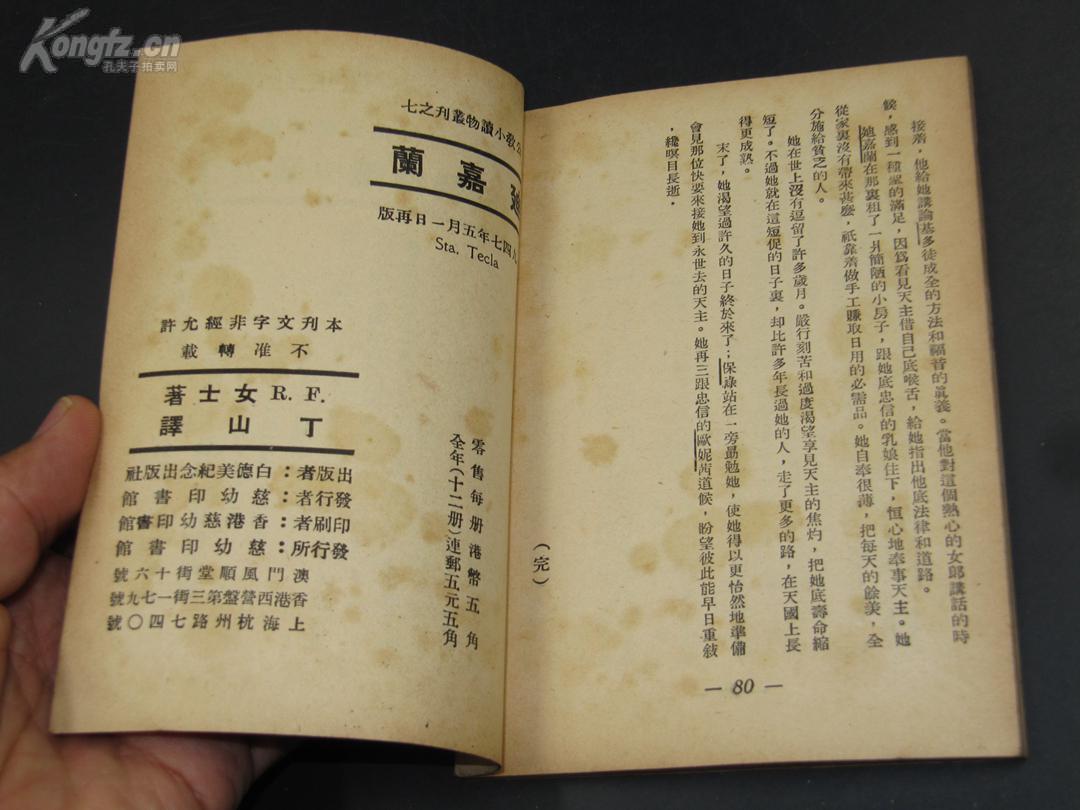 Kongfz.cn
孔夫子拍卖网
接着，他給她講論基多徒成全的方法和福音的眞義。當他對這個熱心的女郎講話的時
候，感到一種聖的滿足，因爲看見天主借自己底喉舌，給她指出他底法律和道路。
嘉蘭在那裏租了一所簡陋的小房子，跟她底忠信的乳娘住下，恒心地奉事天主。她
從家裏沒有帶來甚麽，祇靠着做手工賺取日用的必需品。她自奉很薄，把每天的餘羨，全
分施給貧乏的人。
她在世上沒有逗留了許多歲月。嚴行刻苦和過度渴望享見天主的焦灼，把她底壽命縮
短了。不過她就在這短促的日子裏，却比許多年長過她的人，走了更多的路，在天國上長
得更成熟。
末了，她渴望過許久的日子終於來了；保祿站在一旁勗勉她，使她得以更怡然地準備
會見那位快要來接她到永世去的天主。她再三跟忠信的歐妮茜道候，盼望彼此能早日重敍
，纔瞑目長逝。
（完）
— 80 —
敎小讀物叢刊之七
嘉蘭
四七年五月一日再版
Sta. Tecla
本刊文字非經允許
不准轉載
F. R.女士著
丁山譯
出版者：白德美紀念出版社
發行者：慈幼印書館
印刷者：香港慈幼印書館
發行所：慈幼印書館
澳門風順堂街十六號
香港西營盤第三街一七九號
上海杭州路七四〇號
零售每册港幣五角
全年（十二册）連郵五元五角